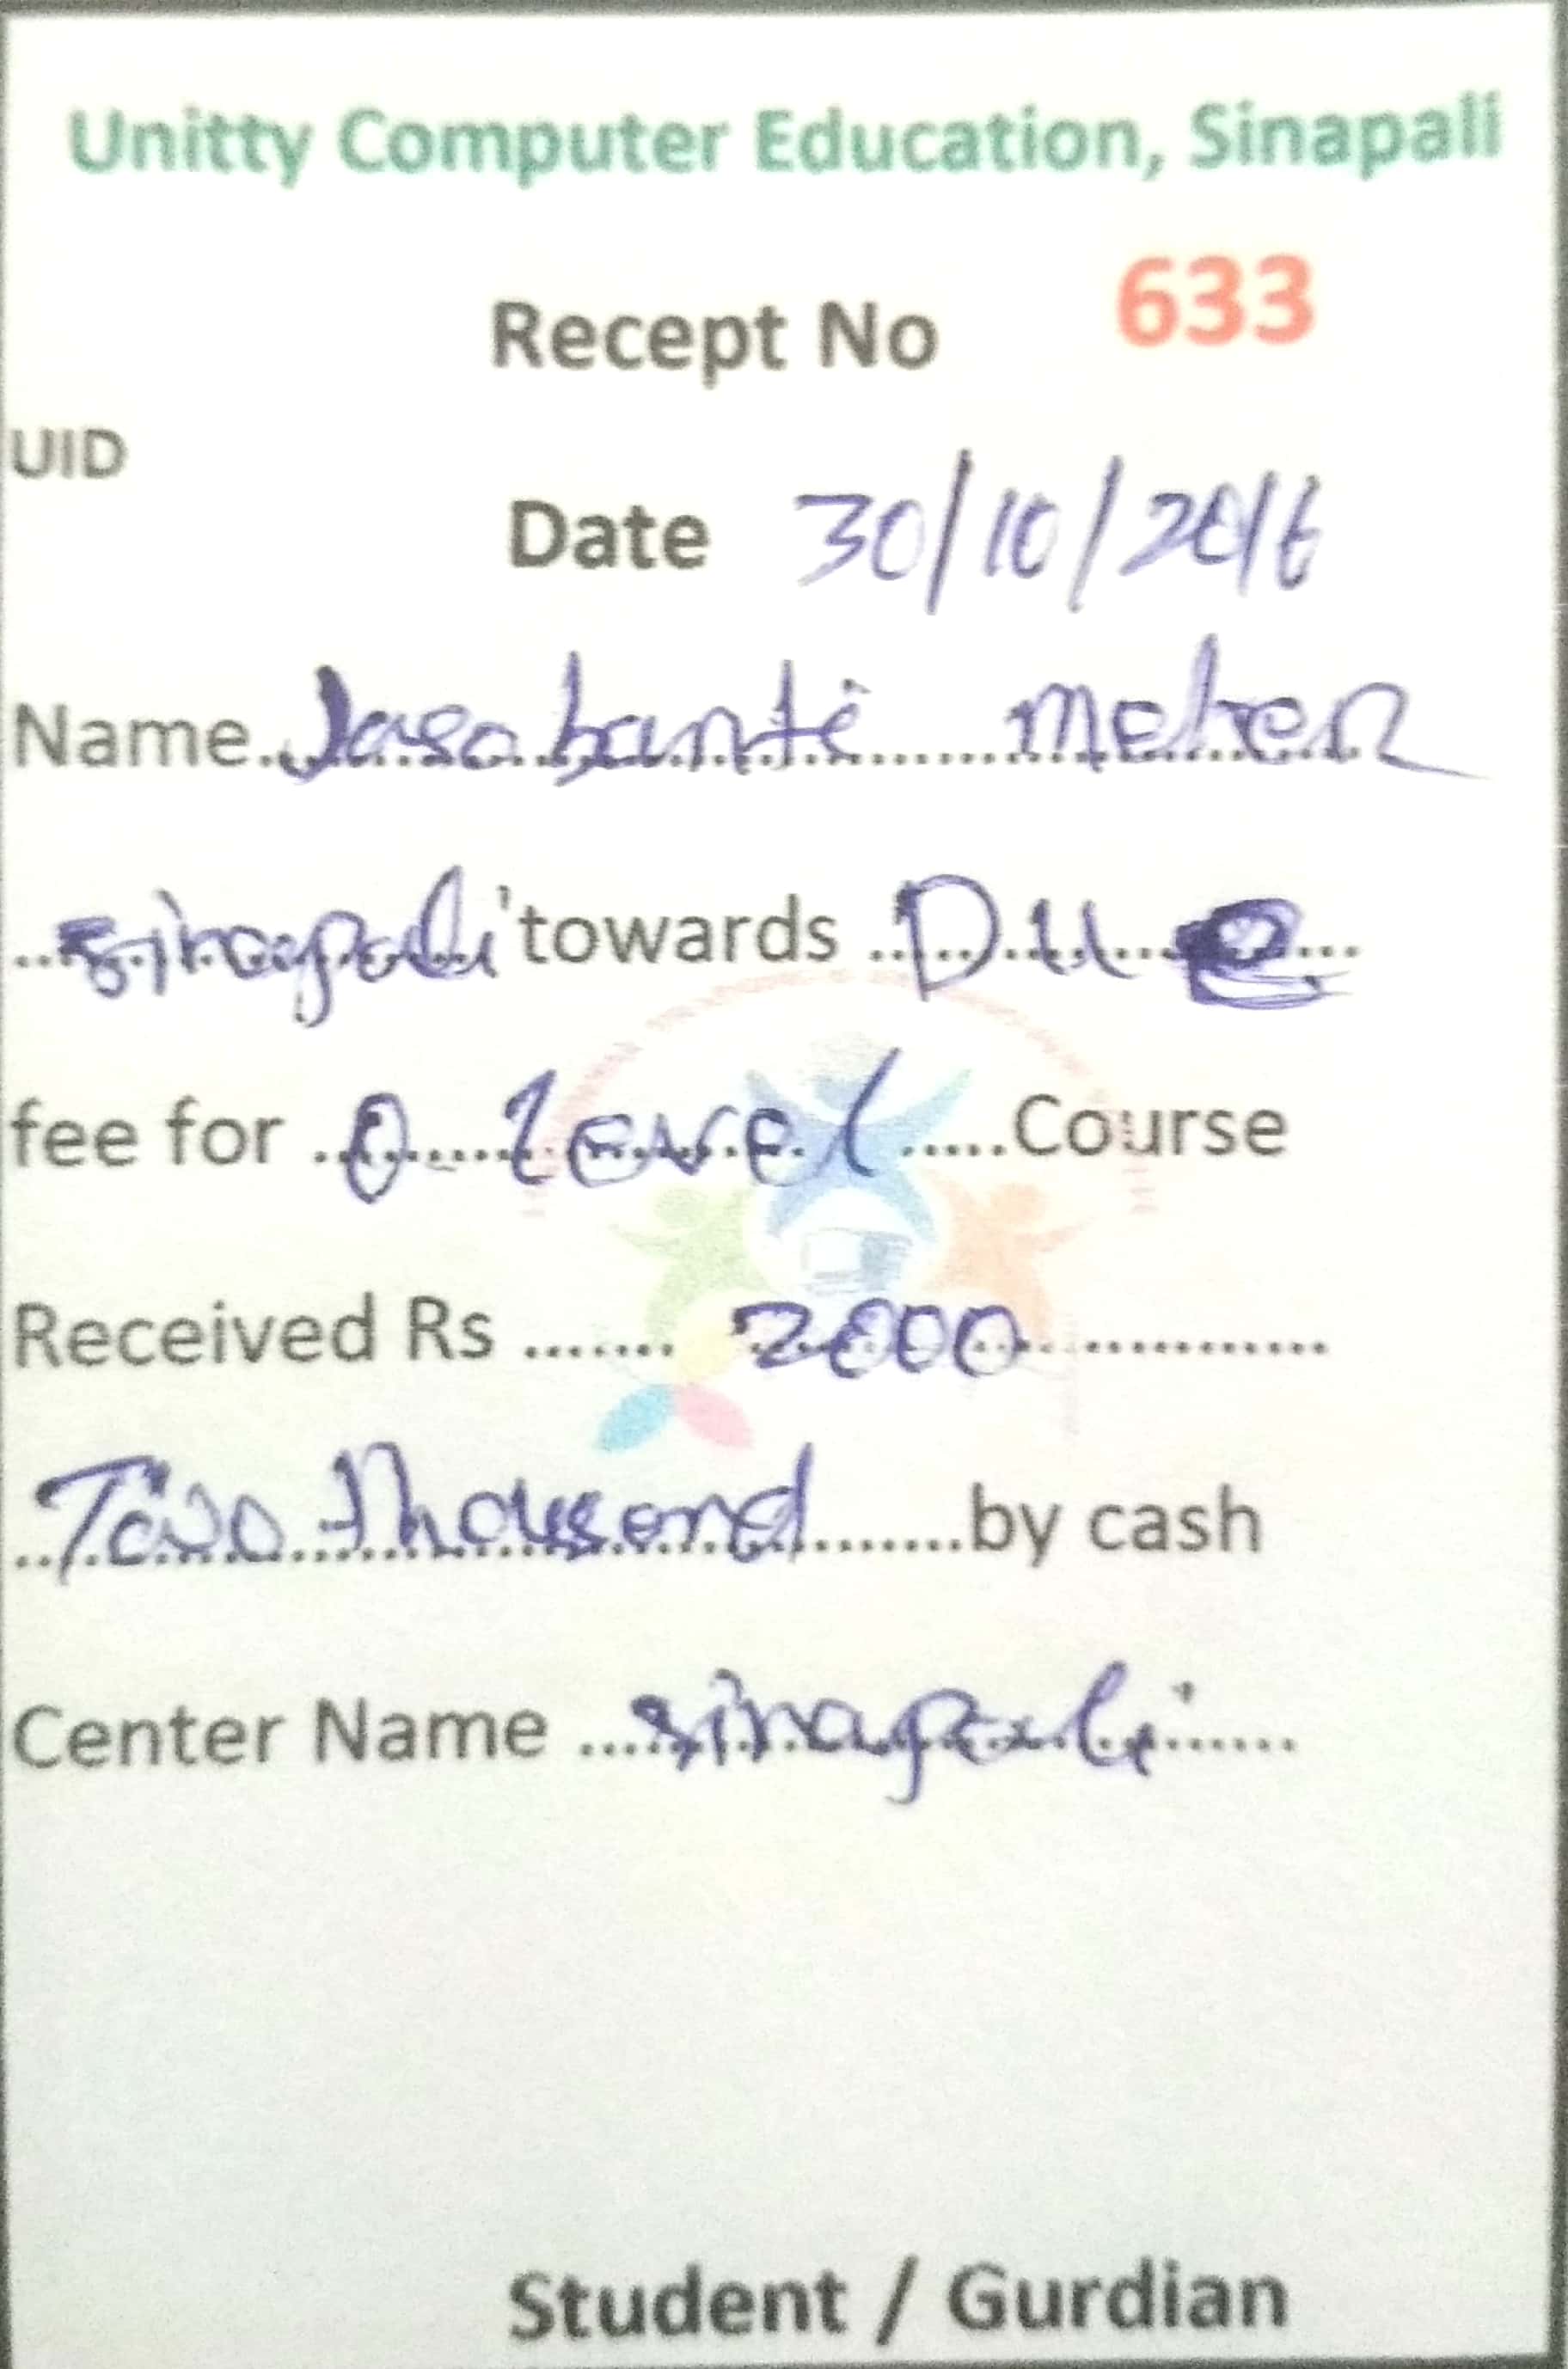 Unitty Computer Education, Sinapali
Recept No 633
UID
Date 30/10/2016
Name Jasobanti meher
sinapali towards Due
fee for O-level Course
Received Rs 2000
Two thousand by cash
Center Name sinapali
Student / Gurdian